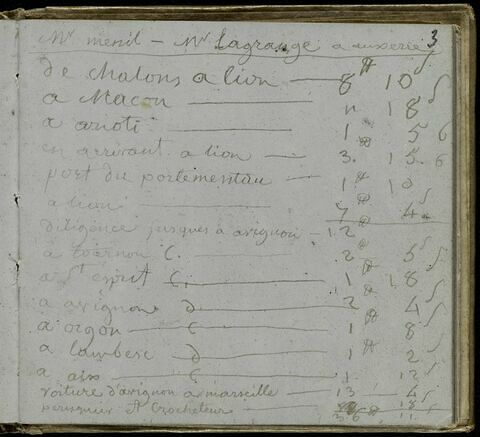 Mr menil — Mr Lagrange a auxerre 3
de chalons a lion — 8 ₶ 10 s
a Macon — 18 s
a arioti — 1 ₶ 5 6
en arrivant a lion — 3. 15. 6
port du portemental — 1 ₶ 10
a lion — 7 4 s
diligence jusques a avignon — 12
a tournon C. — 2 ₶ 5 s
a St esprit C. — 1 18 s
a avignon d — 2 ₶ 4 s
a orgon C — 1 ₶ 8
a lambesc d — 1 ₶ 2 s
a aix C — 1 12 s
voiture d'avignon a marseille — 13 4 s
perruquier et Crocheteur —